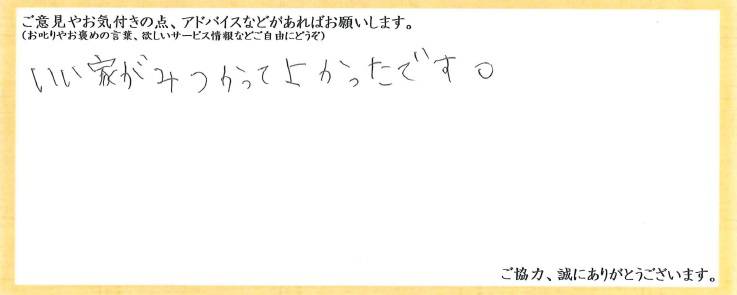 ご意見やお気付きの点、アドバイスなどがあればお願いします。
(お叱りやお褒めの言葉、欲しいサービス情報などご自由にどうぞ)
いい家がみつかってよかったです。
ご協力、誠にありがとうございます。